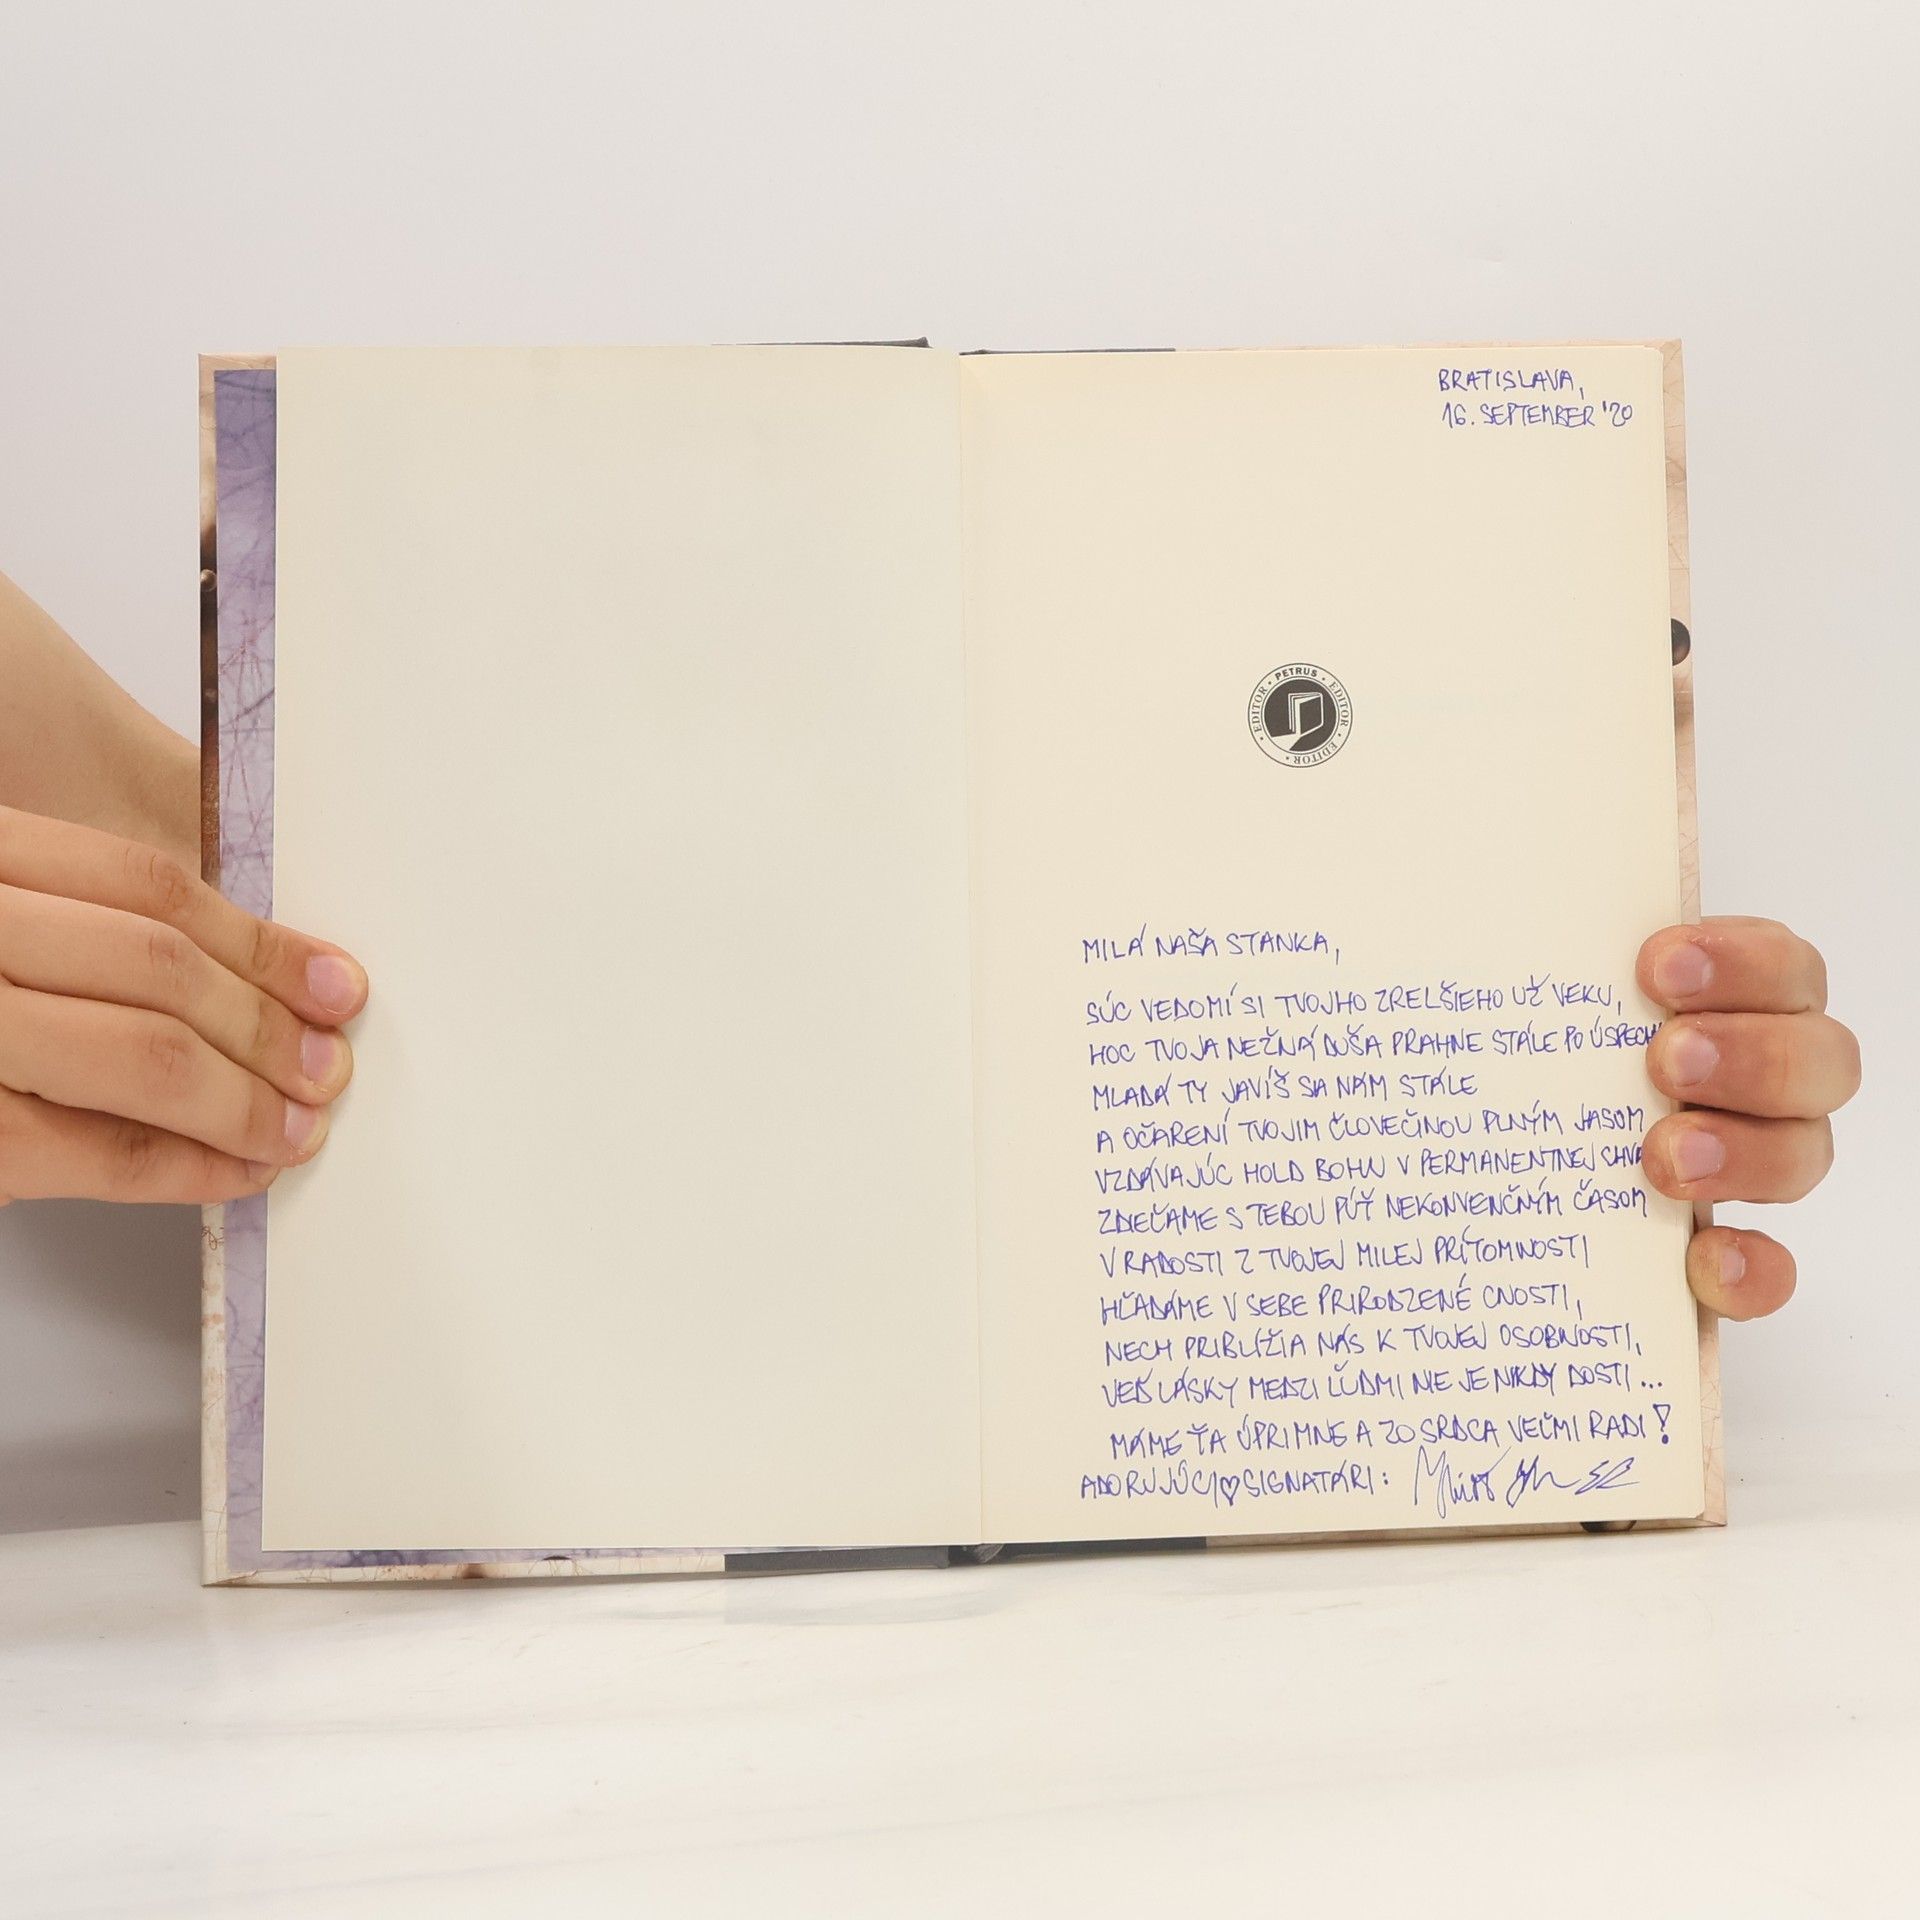 BRATISLAVA,
16. SEPTEMBER '20
EDITOR • PETRUS • EDITOR • EDITOR •
MILÁ NAŠA STANKA,
SÚC VEDOMÍ SI TVOJHO ZRELŠIEHO UŽ VEKU,
HOC TVOJA NEŽNÁ DUŠA PRAHNE STÁLE PO ÚSPECH
MLADÁ TY JAVÍŠ SA NÁM STÁLE
A OČARENÍ TVOJIM ČLOVEČINOU PLNÝM JASOM
VZDÁVAJÚC HOLD BOHU V PERMANENTNEJ CHVÁ
ZDIEĽAME S TEBOU PÚŤ NEKONVENČNÝM ČASOM
V RADOSTI Z TVOJEJ MILEJ PRÍTOMNOSTI
HĽADÁME V SEBE PRIRODZENÉ CNOSTI,
NECH PRIBLÍŽIA NÁS K TVOJEJ OSOBNOSTI,
VEĎ LÁSKY MEDZI ĽUĎMI NIE JE NIKDY DOSTI...
MÁME ŤA ÚPRIMNE A ZO SRDCA VEĽMI RADI!
ADORUJÚCI ♡ SIGNATÁRI: